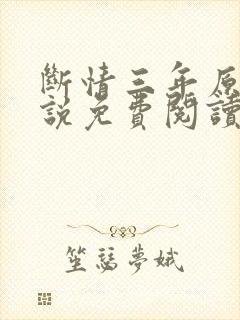 斷情三年原
說免費閱讀
笙瑟夢娥